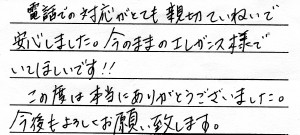 電話での対応がとても親切ていねいで
安心しました。今のままのエレガンス様で
いてほしいです!!
この度は本当にありがとうございました。
今後もよろしくお願い致します。